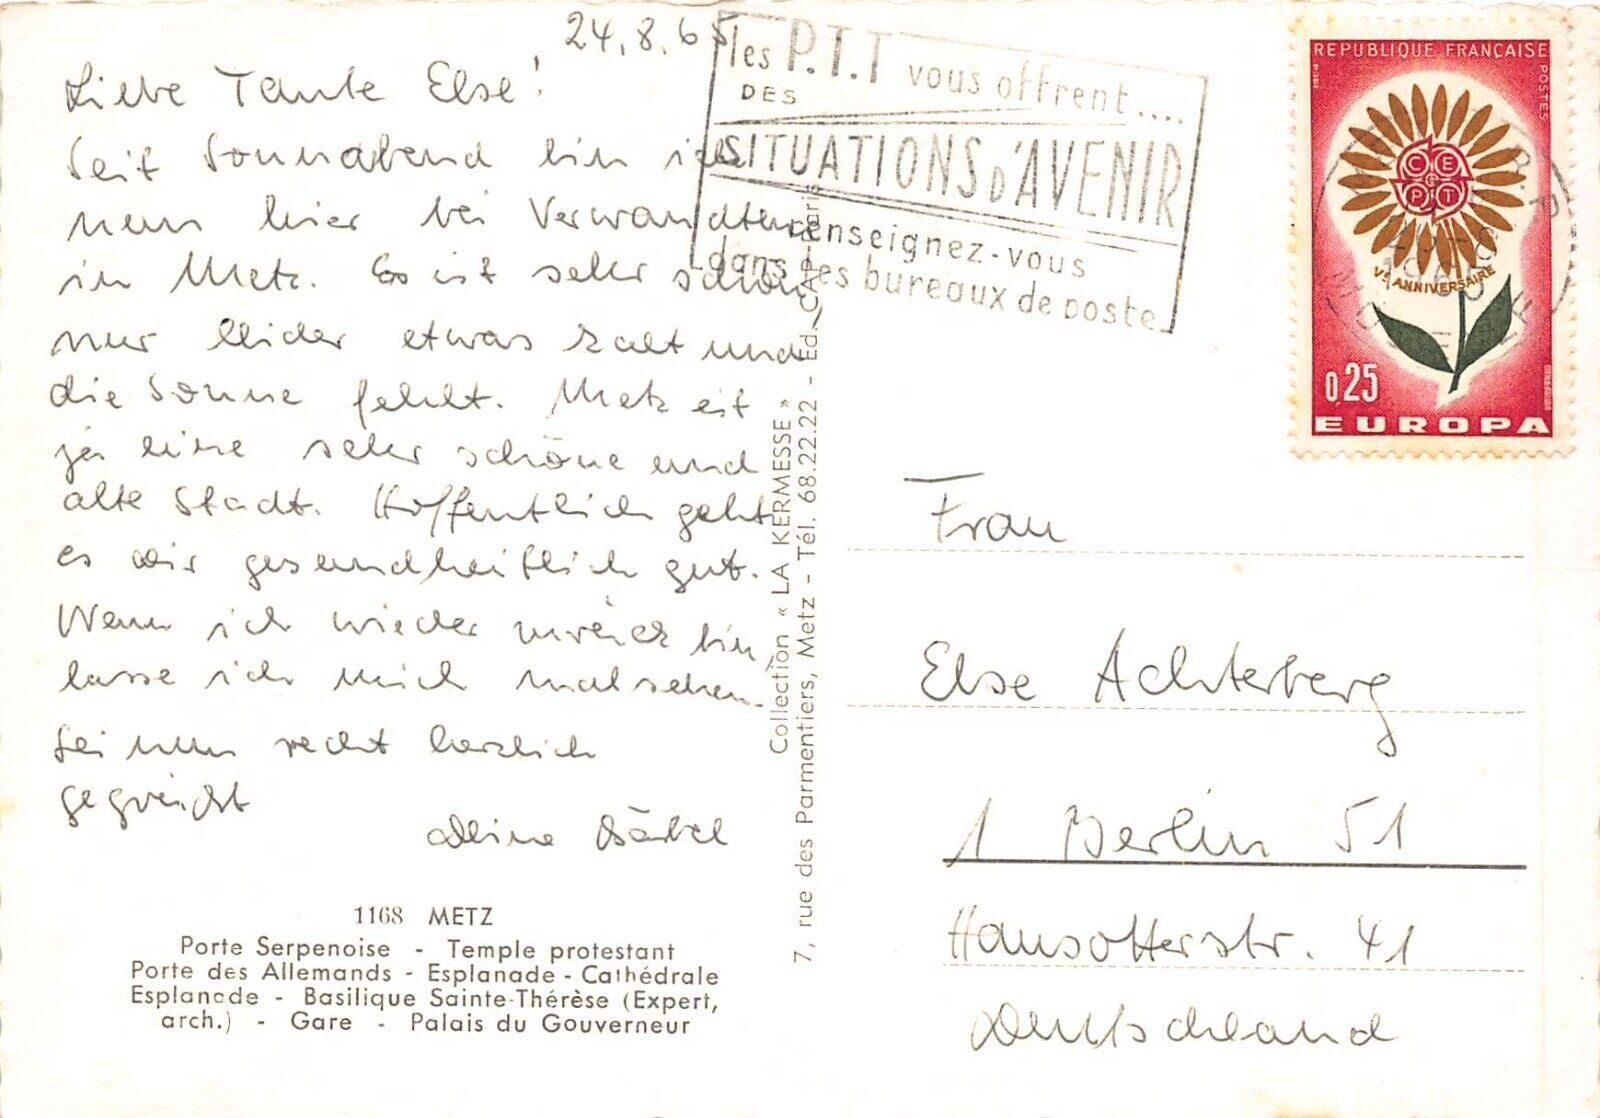 24.8.65
Liebe Tante Else!
Seit Sonnabend bin ich
nun hier bei Verwandten
in Metz. Es ist sehr schön
nur leider etwas kalt und
die Sonne fehlt. Metz ist
ja eine sehr schöne und
alte Stadt. Hoffentlich geht
es dir gesundheitlich gut.
Wenn ich wieder zurück bin
lasse ich mich mal sehen.
Sei nun recht herzlich
gegrüßt
Deine Bärbel
1168 METZ
Porte Serpenoise - Temple protestant
Porte des Allemands - Esplanade - Cathédrale
Esplanade - Basilique Sainte-Thérèse (Expert,
arch.) - Gare - Palais du Gouverneur
Collection « LA KERMESSE »
7, rue des Parmentiers, Metz - Tél. 68.22.22 - Ed. CAP-Paris
les P.T.T vous offrent....
DES
SITUATIONS D'AVENIR
renseignez-vous
dans les bureaux de poste
REPUBLIQUE FRANÇAISE
POSTES
C E
P T
Ve ANNIVERSAIRE
0,25
EUROPA
Frau
Else Achterberg
1 Berlin 51
Hausotterstr. 41
Deutschland